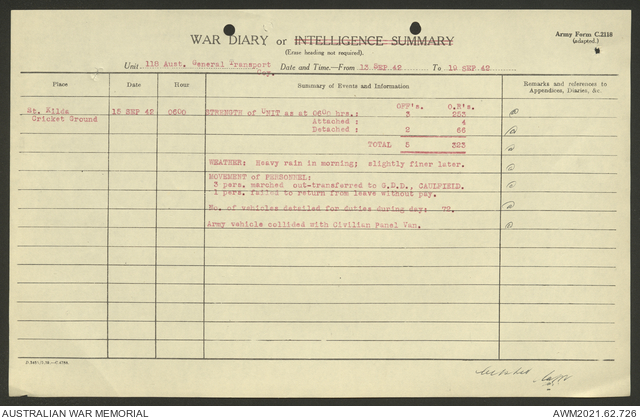 WAR DIARY or INTELLIGENCE SUMMARY
(Erase heading not required).
Army Form C.2118
(adapted.)
Unit 118 Aust. General Transport Coy. Date and Time.—From 13 SEP.42 To 19 SEP.42
Place Date Hour Summary of Events and Information Remarks and references to Appendices, Diaries, &c.
St. Kilda Cricket Ground 15 SEP 42 0600 STRENGTH of UNIT as at 0600 hrs.: OFF's. O.R's.
3 253
Attached : 4
Detached : 2 66
TOTAL 5 323
WEATHER: Heavy rain in morning; slightly finer later.
MOVEMENT of PERSONNEL:
3 pers. marched out-transferred to G.D.D., CAULFIELD.
1 pers. failed to return from leave without pay.
No. of vehicles detailed for duties during day: 72.
Army vehicle collided with Civilian Panel Van.
AUSTRALIAN WAR MEMORIAL AWM2021.62.726